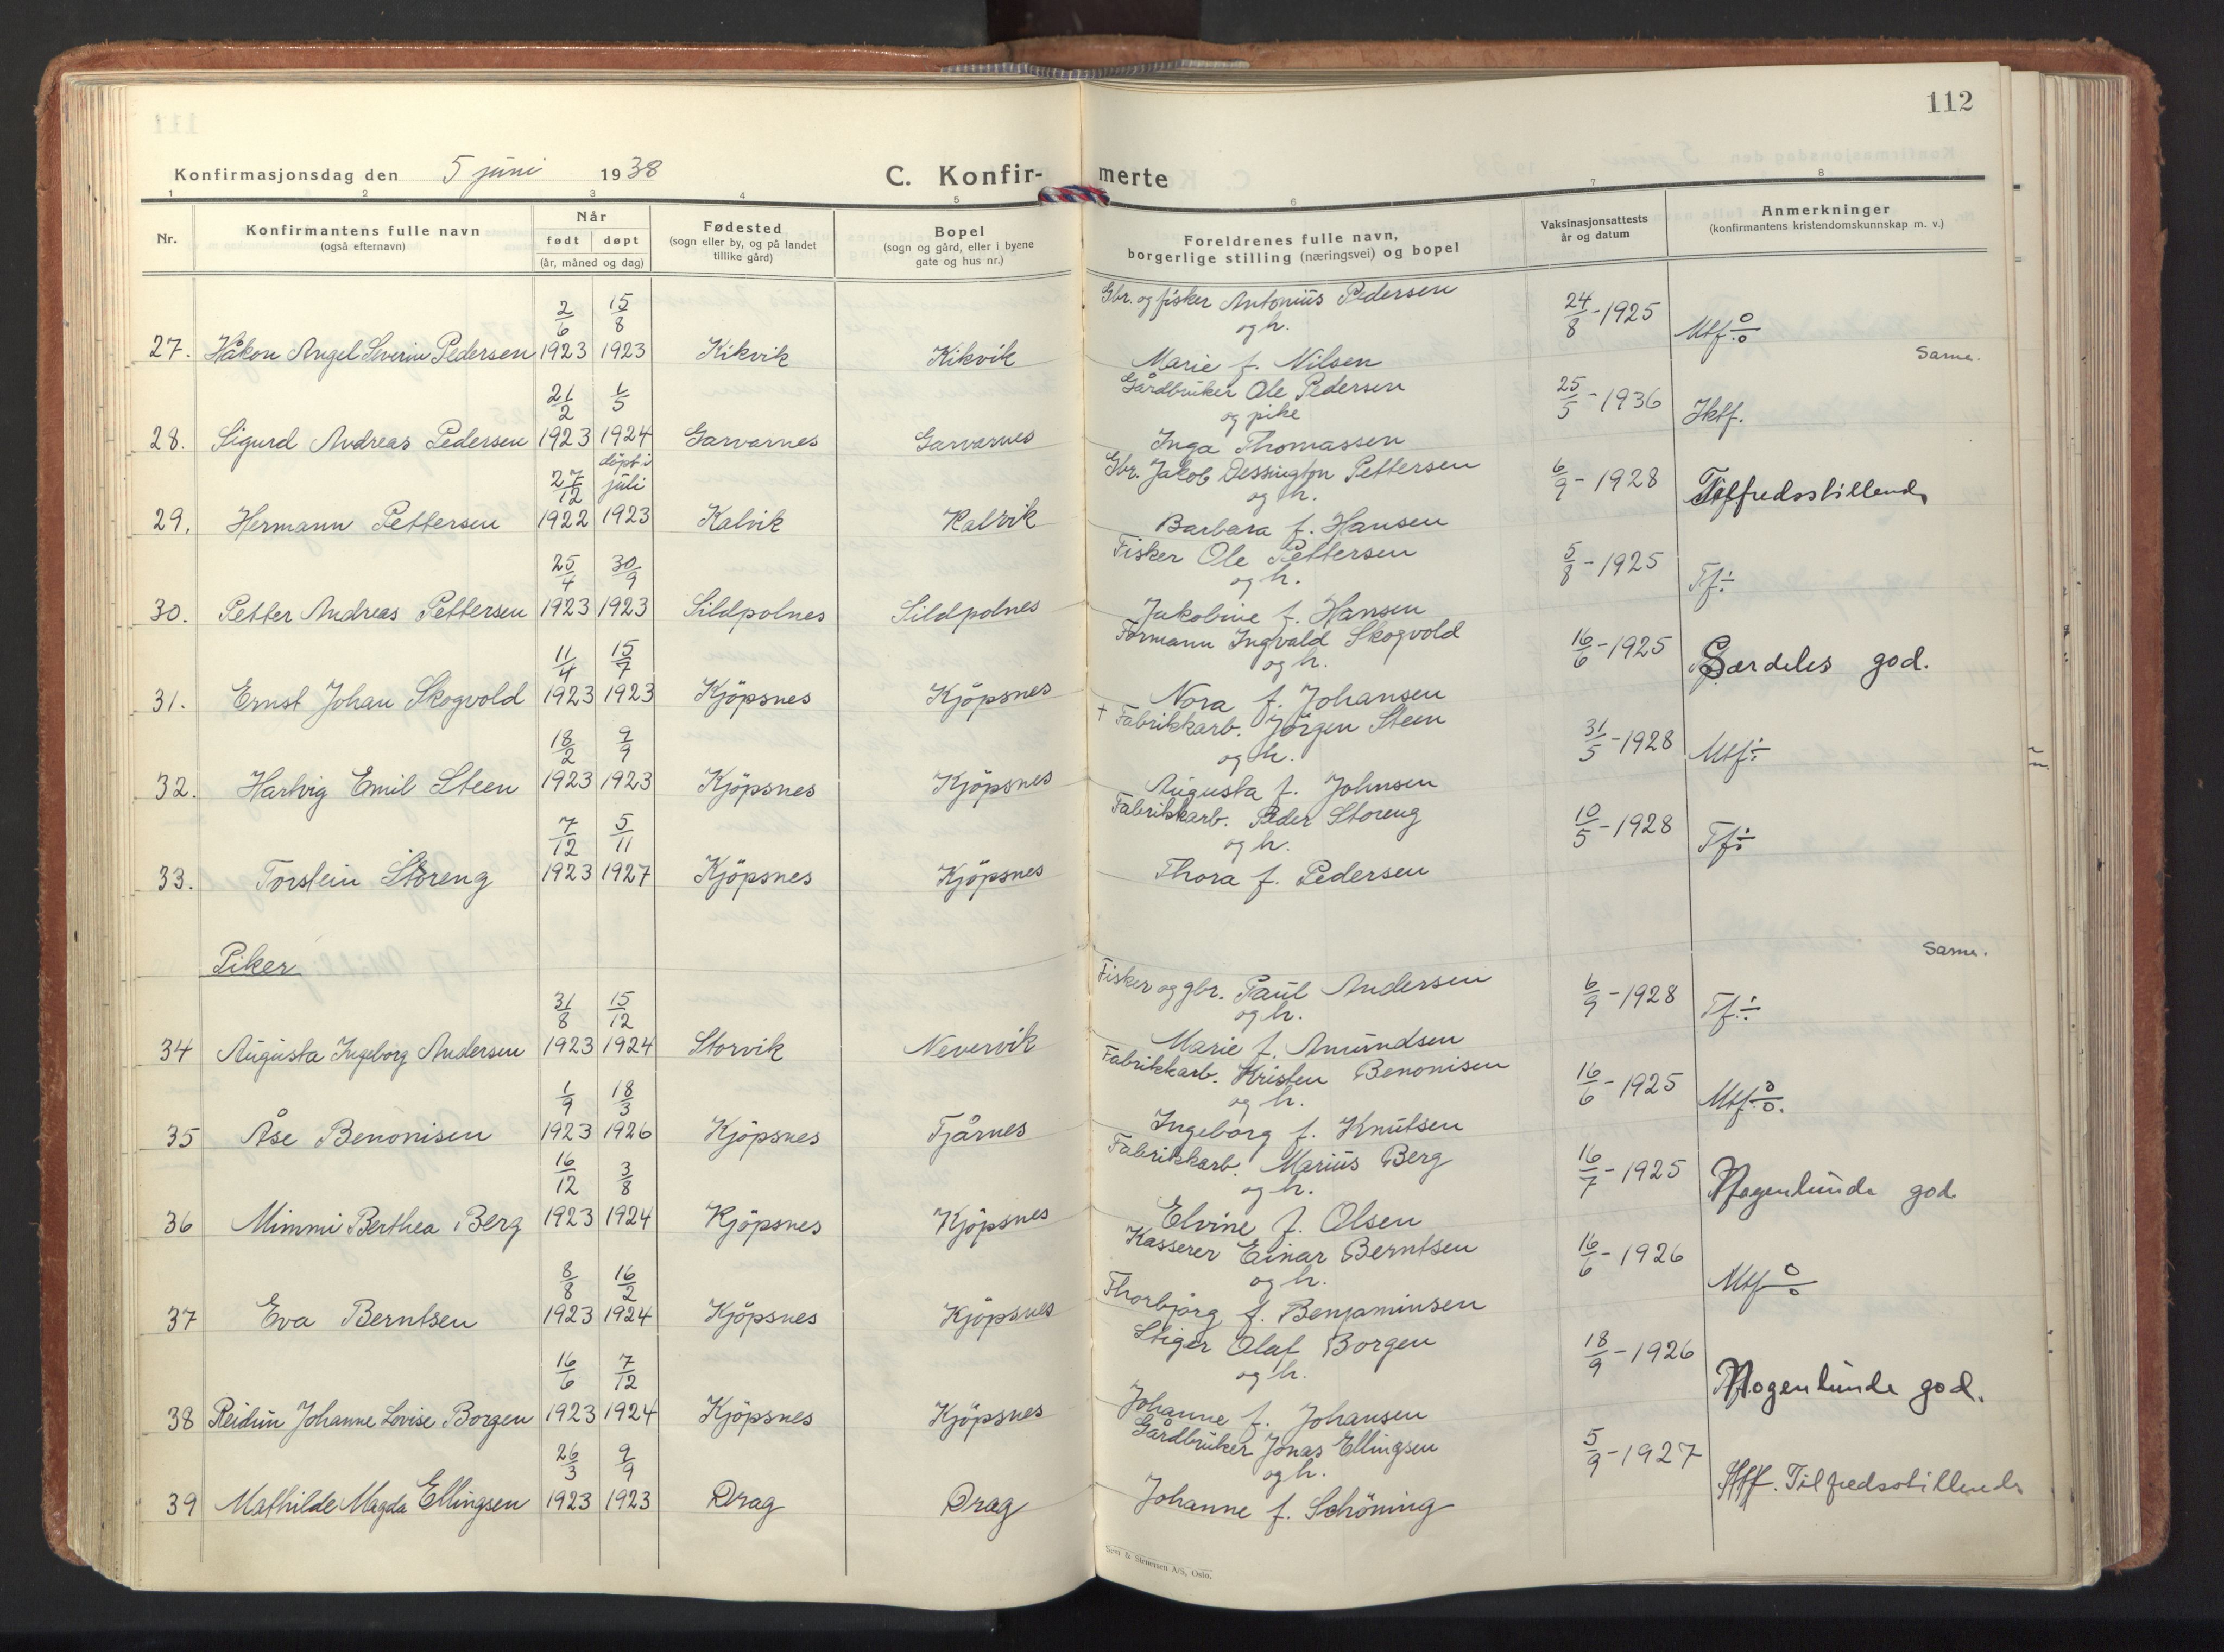 112
Konfirmasjonsdag den 5 juni 1938
C. Konfirmerte
1 2 3 4 5 6 7 8
Nr.
Konfirmantens fulle navn
(også efternavn)
Når
født døpt
(år, måned og dag)
Fødested
(sogn eller by, og på landet
tillike gård)
Bopel
(sogn og gård, eller i byene
gate og hus nr.)
Foreldrenes fulle navn,
borgerlige stilling (næringsvei) og bopel
Vaksinasjonsattests
år og datum
Anmerkninger
(konfirmantens kristendomskunnskap m. v.)
2/6 15/8 Gbr. og fisker Antonius Pedersen 24/8-1925
og h.
27. Håkon Angel Severin Pedersen 1923 1923 Kikvik Kikvik Marie f. Nilsen Mtf.
Same.
21/2 1/5 Gårdbruker Ole Pedersen 25/5-1936
og pike
28. Sigurd Andreas Pedersen 1923 1924 Garvarnes Garvarnes Inga Thomassen Iktf.
27/12 døpt i juli Gbr. Jakob Dessington Pettersen 6/9-1928
og h.
29. Hermann Pettersen 1922 1923 Kalvik Kalvik Barbara f. Hansen Tilfredsstillende
25/4 30/9 Fisker Ole Pettersen 5/8-1925
og h.
30. Petter Andreas Pettersen 1923 1923 Sildpolnes Sildpolnes Jakobine f. Hansen Tf÷
11/4 15/7 Formann Ingvald Skogvold 16/6-1925
og h.
31. Ernst Johan Skogvold 1923 1923 Kjöpsnes Kjöpsnes Nora f. Johansen Særdeles god.
18/2 9/9 + Fabrikkarb. Jörgen Steen 31/5-1928
og h.
32. Hartvig Emil Steen 1923 1923 Kjöpsnes Kjöpsnes Augusta f. Johnsen Mtf÷
7/12 5/11 Fabrikkarb. Peder Storeng 10/5-1928
og h.
33. Torstein Storeng 1923 1927 Kjöpsnes Kjöpsnes Thora f. Pedersen Tf÷
Piker
Same.
31/8 15/12 Fisker og gbr. Paul Andersen 6/9-1928
og h.
34 Augusta Ingeborg Andersen 1923 1924 Storvik Nevervik Marie f. Amundsen Tf.÷
1/9 18/3 Fabrikkarb. Kristen Benonisen 16/6-1925
og h.
35 Åse Benonisen 1923 1926 Kjöpsnes Tjårnes Ingeborg f. Knutsen Mtf.
16/12 3/8 Fabrikkarb. Marius Berg 16/7-1925
og h.
36 Mimmi Berthea Berg 1923 1924 Kjöpsnes Kjöpsnes Elvine f. Olsen Nogenlunde god
8/8 16/2 Kasserer Einar Berntsen 16/6-1926
og h.
37 Eva Berntsen 1923 1924 Kjöpsnes Kjöpsnes Thorbjörg f. Benjaminsen Mtf
16/6 7/12 Stiger Olaf Borgen 18/9-1926
og h.
38 Reidun Johanne Lovise Borgen 1923 1924 Kjöpsnes Kjöpsnes Johanne f. Johansen Nogenlunde god.
26/3 9/9 Gårdbruker Jonas Ellingsen 5/9-1927
og h.
39 Mathilde Magda Ellingsen 1923 1923 Drag Drag Johanne f. Schöning Tilfredsstillende
Sem & Stenersen A/S, Oslo.